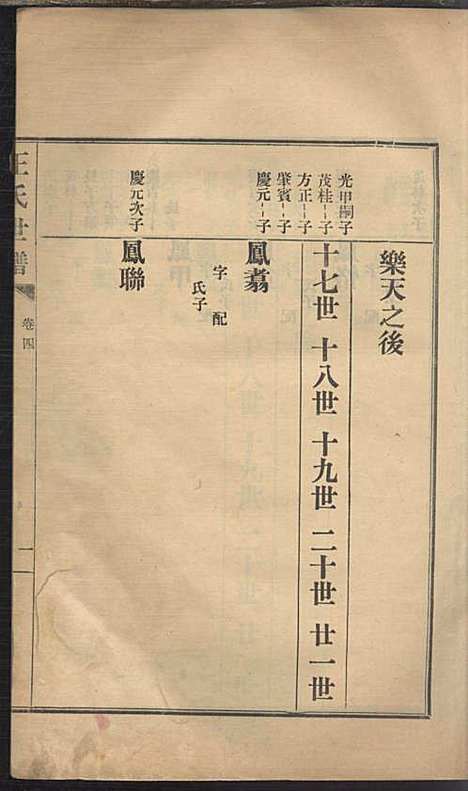 樂天之後
十七世 十八世 十九世 二十世 廿一世
光甲嗣子
茂桂一子
方正一子
肇賓一子
慶元一子
鳳翥
字 配
氏子
慶元次子
鳳聯
王氏世譜
卷四